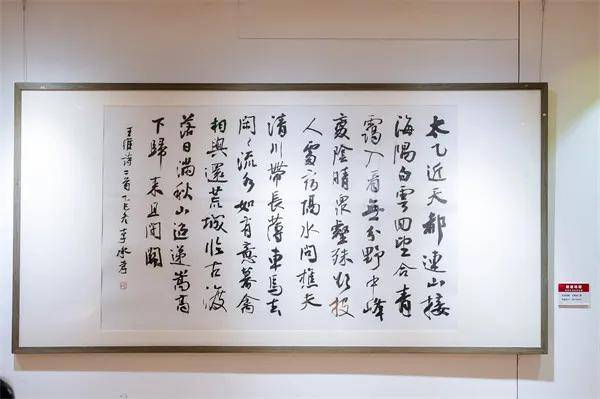 太乙近天都連山接
海隅白雲回望合青
靄入看無分野中峰
變陰晴衆壑殊欲投
人處宿隔水問樵夫
清川帶長薄車馬去
閑〻流水如有意暮禽
相與還荒城臨古渡
落日滿秋山迢遞嵩高
下歸來且閉關
王維詩二首乙巳春李